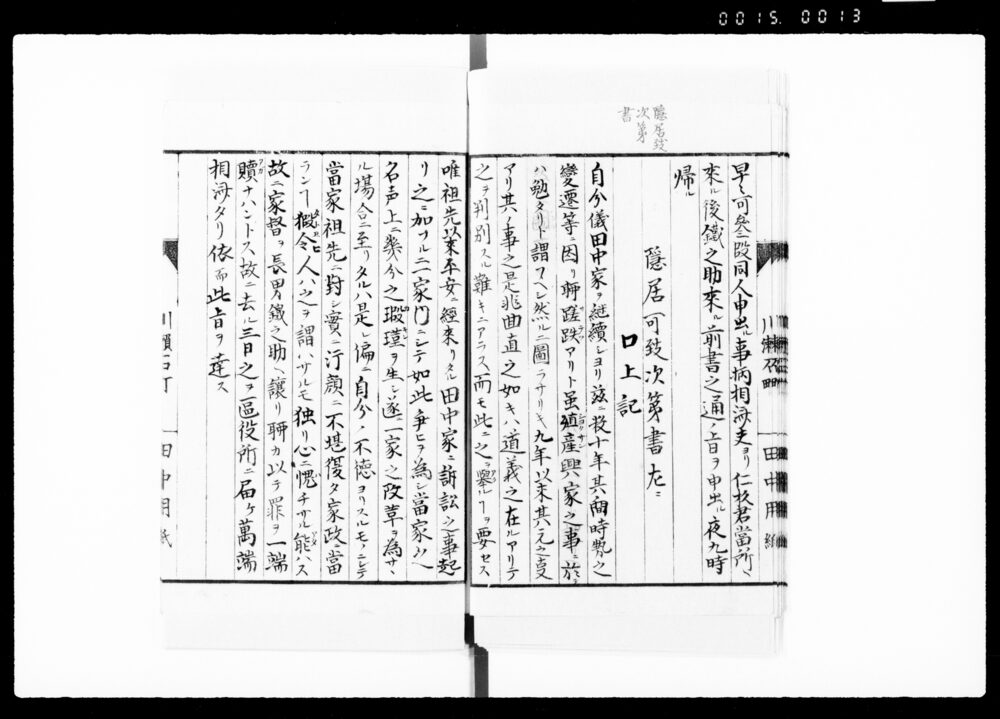 0015. 0013
隠居致
次第
書
早々可参一段同人申出ル事病相済夫ヨリ仁杉君當所ヘ
來ル後鐵之助來ル前書之通ノ旨ヲ申出ル夜九時
帰ル
隠居可致次第書左ニ
口上記
自分儀田中家ヲ継續シヨリ茲ニ数十年其間時勢之
變遷等ニ因リ聊蹉跌アリト虽殖産興家之事ニ於テ
ハ勉タリト謂フヘシ然ルニ圖ラサリキ九年以来其元之
アリ其ノ事之是非曲直之如キハ道義之在ルアリテ
之ヲ判別スル難キニアラス而モ此ニ之ヲ挙ルヿヲ要セス
川瀬石町
田中用紙
唯祖先以来平安ニ經来リタル田中家ニ訴訟之事起
リ之ニ加フルニ一家門ニシテ如此争ヒヲ為シ當家ノ
名声上ニ幾分之瑕瑾ヲ生シ遂ニ一家之改革ヲ為サヽ
ル場合ニ至リタルハ是レ偏ニ自分ノ不徳ヨリスルモノニシテ
當家祖先ニ對シ實ニ汗顔ニ不堪復タ家政當
ランヿ 縦令人ハ之ヲ謂ハサルモ独リ心ニ愧チサル能ハス
故ニ家督ヲ長男鐵之助ヘ譲リ聊カ以テ罪ヲ一端
贖ナハントス故ニ去ル三日之ヲ區役所ニ届ケ萬端
相済タリ依而此旨ヲ達ス
川瀬石町
田中用紙